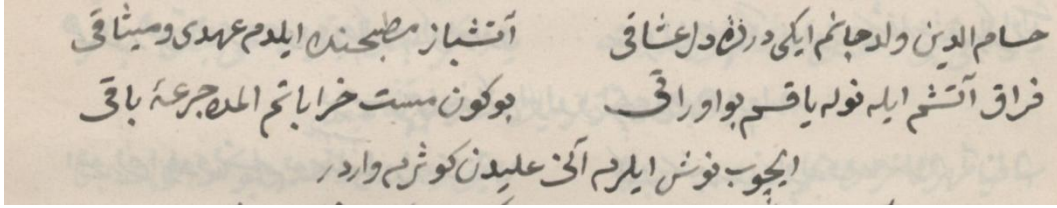 حسام الدین ولد جانم ایکی دردر دل عشاقی آتشباز مطبخنده ایلدم عهدی و میثاقی
فراق آتشم ایله نوله یاقسم بو اوراقی بوکون مست خراباتم المده جرعۀ باقی
ایچوب نوش ایلرم آنی علیدن کوثرم واردر